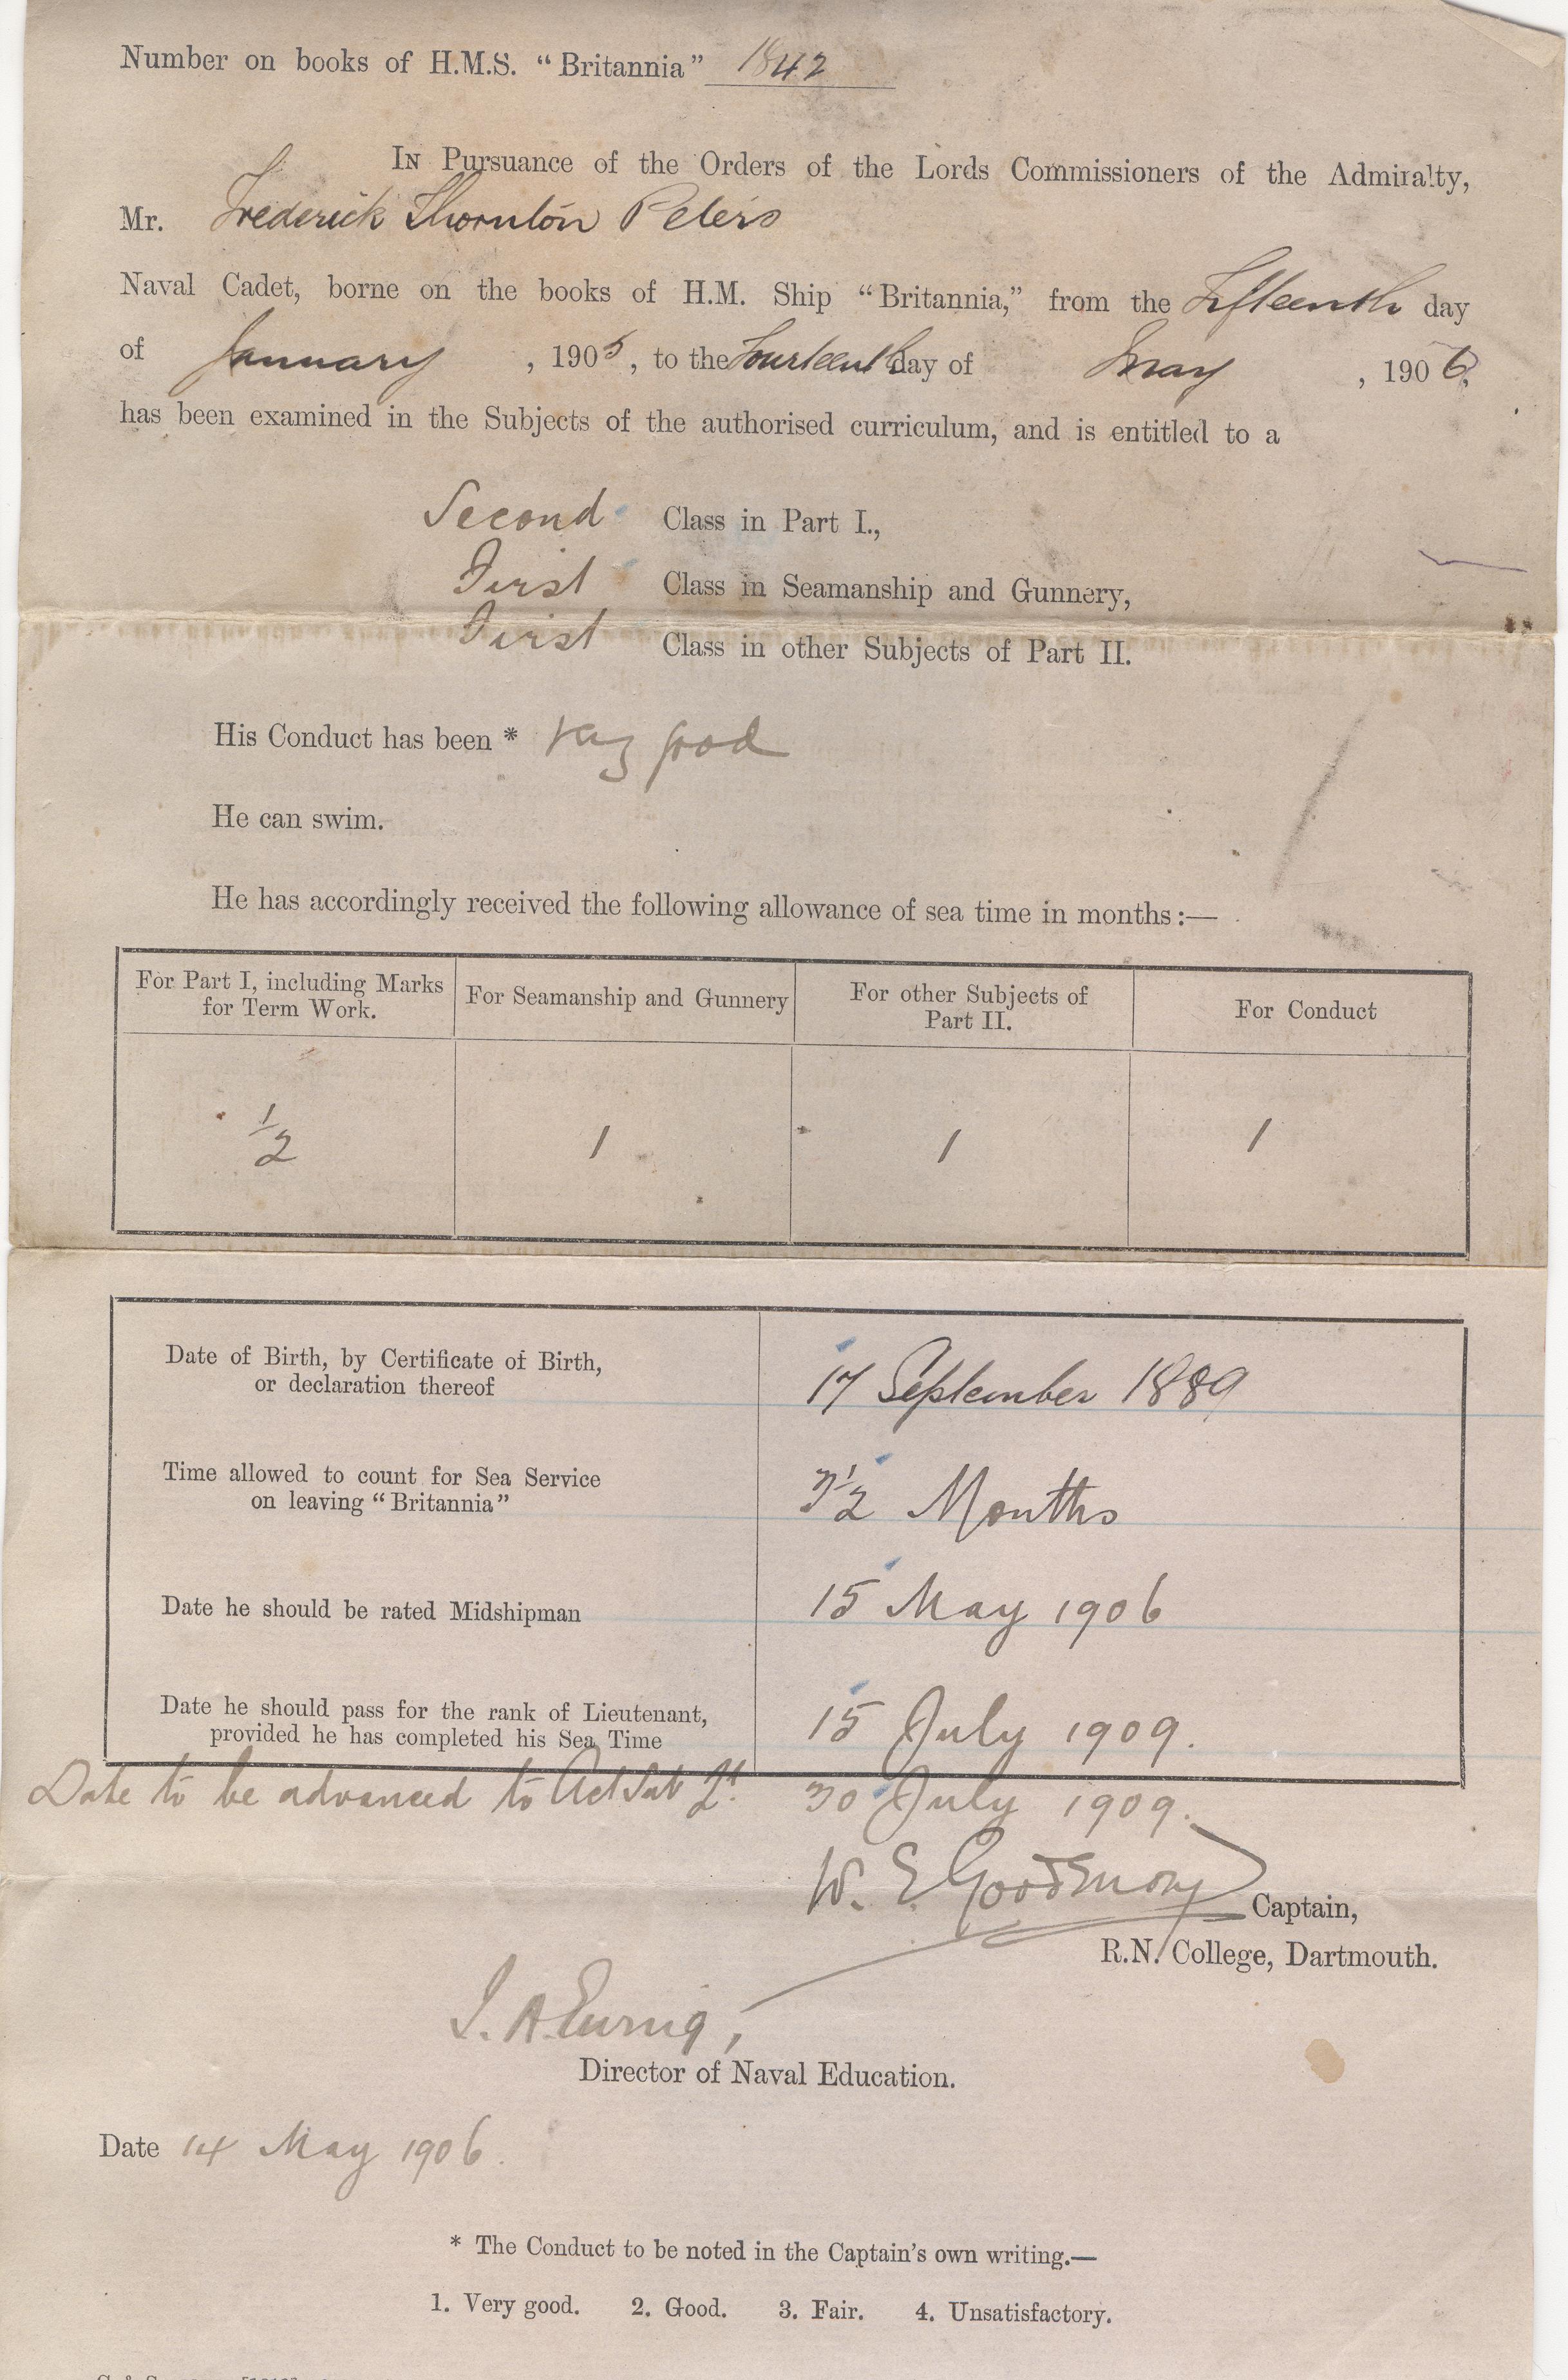 Number on books of H.M.S. “Britannia” 1842
In Pursuance of the Orders of the Lords Commissioners of the Admiralty,
Mr. Frederick Thornton Peters
Naval Cadet, borne on the books of H.M. Ship “Britannia,” from the Fifteenth day
of January , 1905, to the Fourteenth day of May , 1906,
has been examined in the Subjects of the authorised curriculum, and is entitled to a
Second Class in Part I.,
First Class in Seamanship and Gunnery,
First Class in other Subjects of Part II.
His Conduct has been * Very good
He can swim.
He has accordingly received the following allowance of sea time in months :—
For Part I, including Marks for Term Work. For Seamanship and Gunnery For other Subjects of Part II. For Conduct
½ 1 1 1
Date of Birth, by Certificate of Birth,
or declaration thereof 17 September 1889
Time allowed to count for Sea Service
on leaving “Britannia” 3½ Months
Date he should be rated Midshipman 15 May 1906
Date he should pass for the rank of Lieutenant,
provided he has completed his Sea Time 15 July 1909.
Date to be advanced to Act Sub Lt. 30 July 1909.
W. E. Goodenough Captain,
R.N. College, Dartmouth.
J. A. Ewing,
Director of Naval Education.
Date 14 May 1906.
* The Conduct to be noted in the Captain’s own writing.—
1. Very good. 2. Good. 3. Fair. 4. Unsatisfactory.